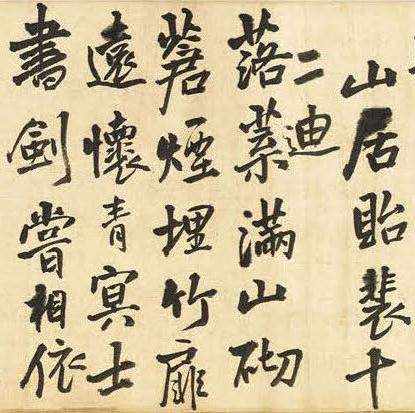 山居貽裴十
二迪
落葉滿山砌
蒼煙埋竹扉
遠懷青冥士
書劍嘗相依